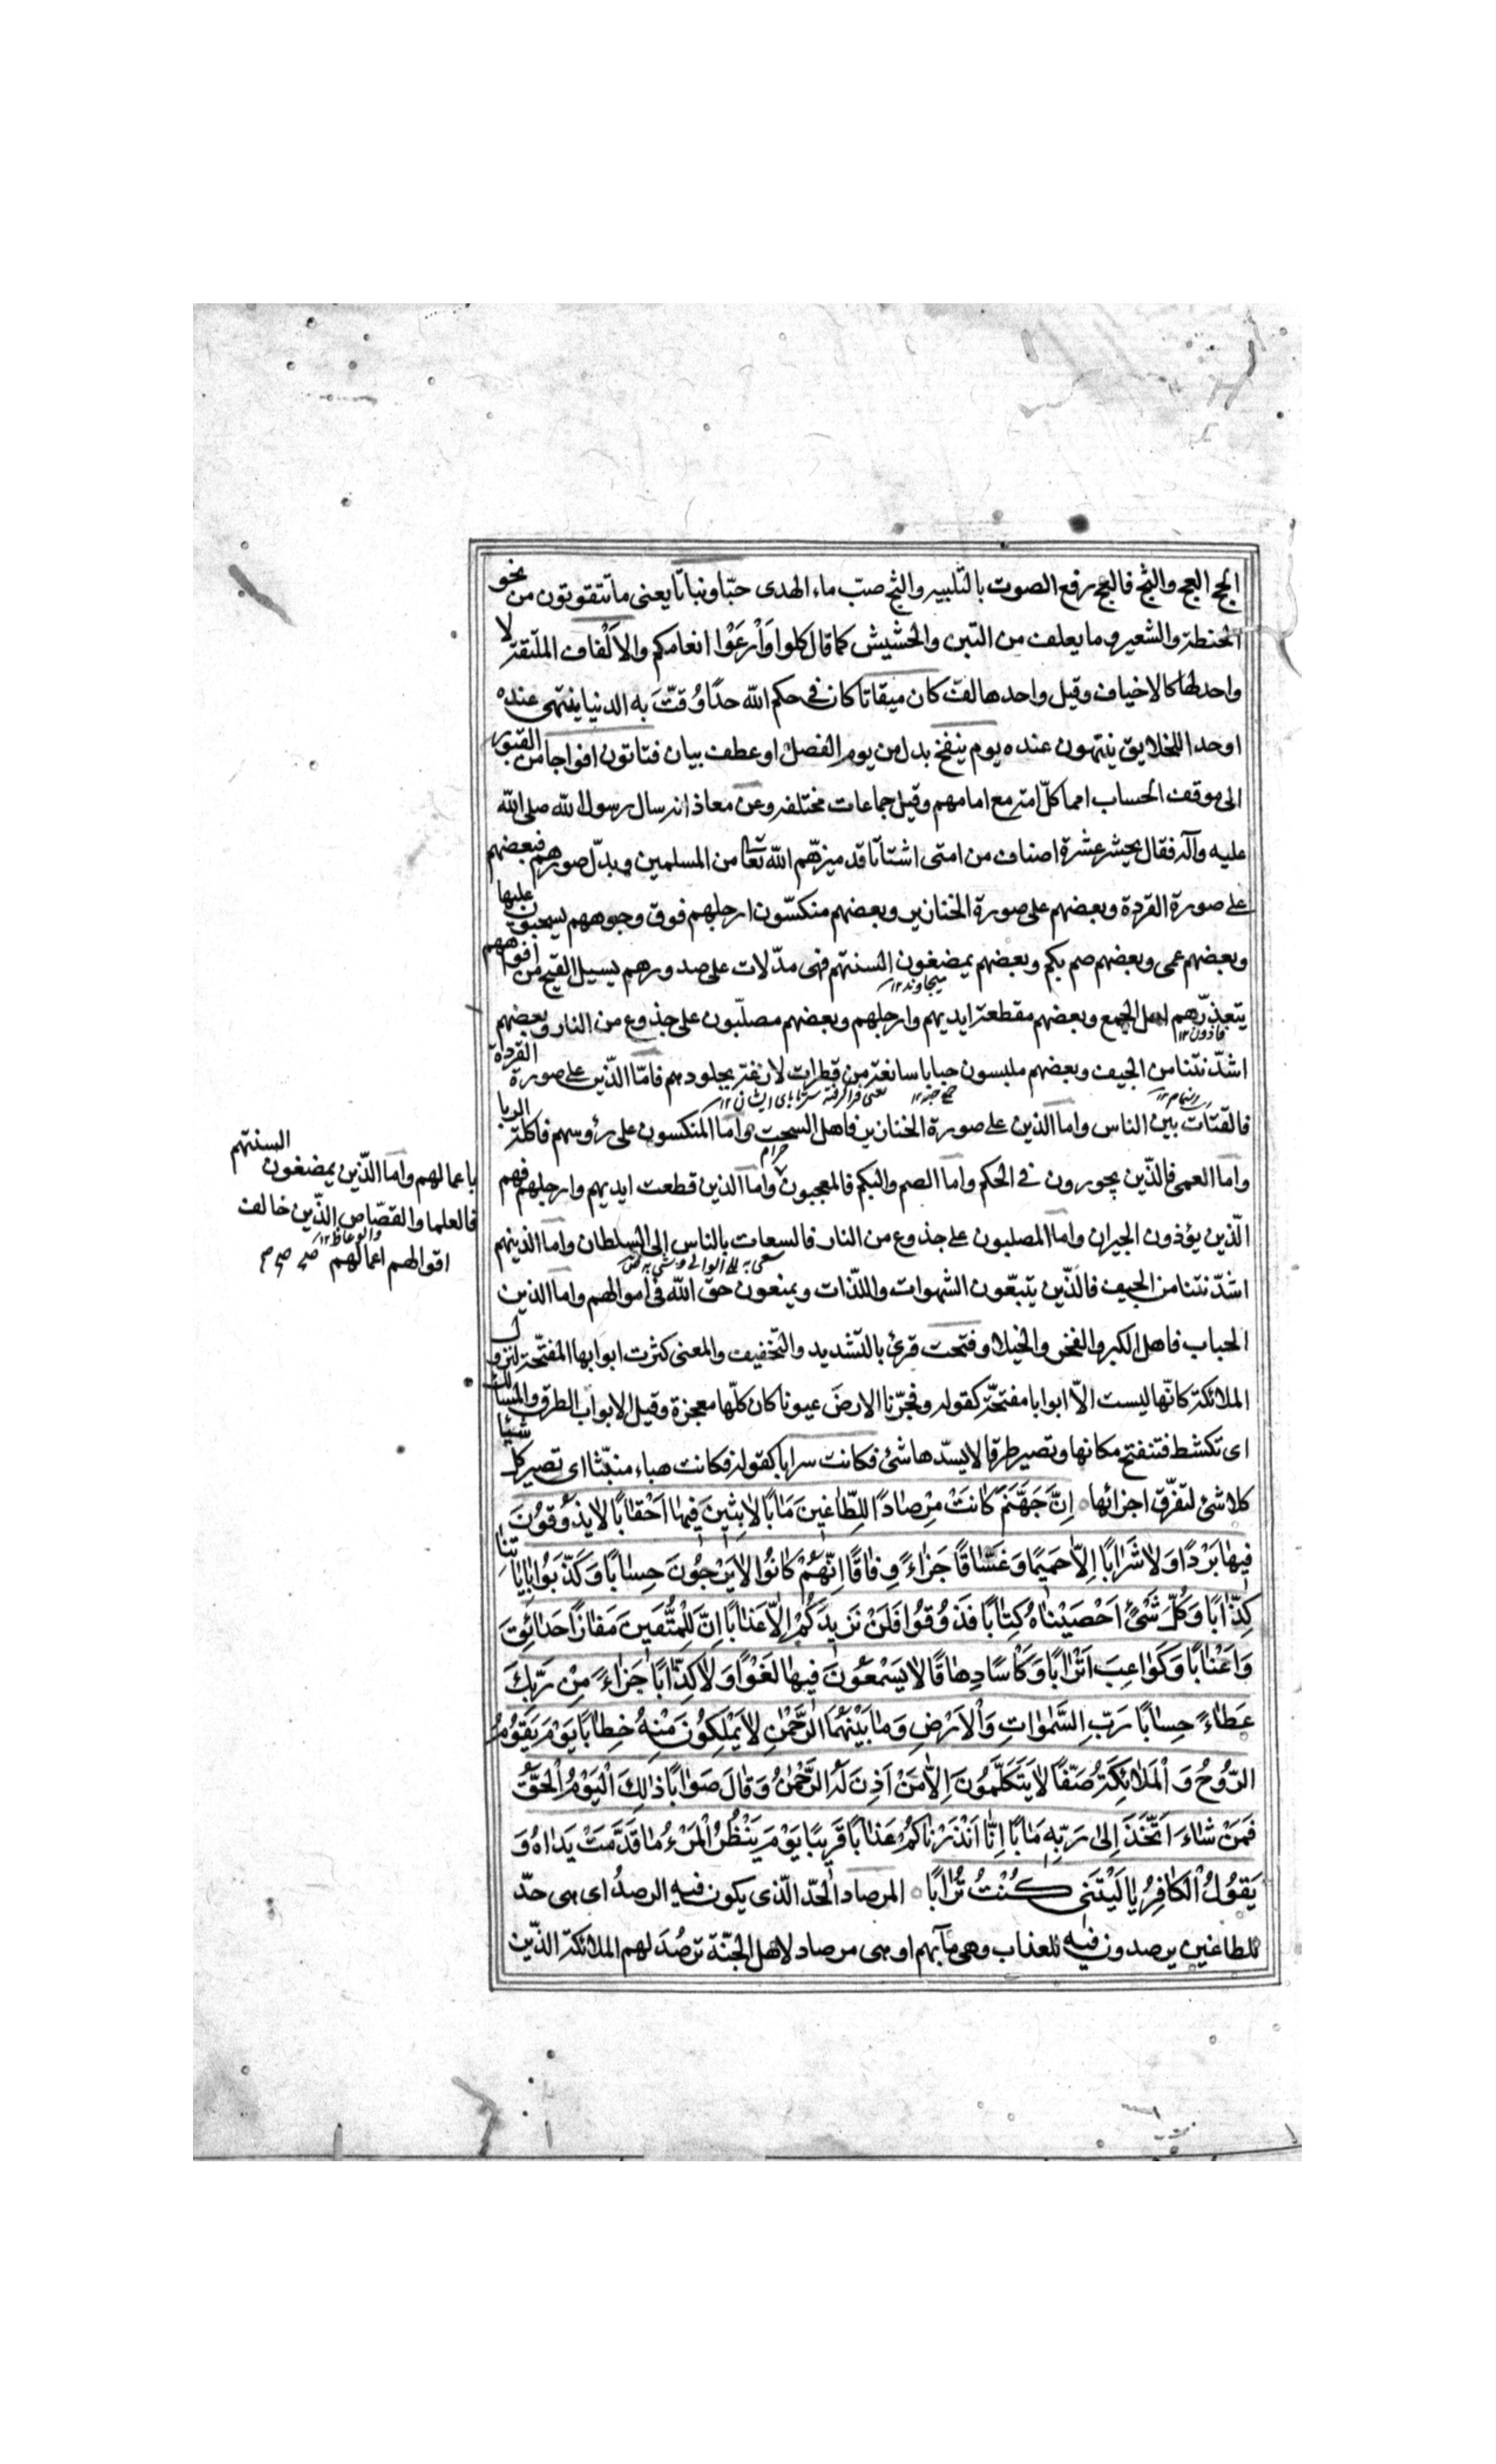 الحج العج والثج فالعج رفع الصوت بالتلبيه والثج صبّ ماء الهدى حبّا ونباتا يعنى ما تتقوتون من نحو
الحنطة والشعير وما يعلف من التبن والحشيش كما قال كلوا وَارْعَوْا انعامكم والاَلْفاف الملتفة لا
واحد لها كالاخياف وقيل واحدها لفّ كان ميقاتا كان فى حكم الله حدّا وُقّتَ به الدنيا ينتهى عنده
او حدا للخلايق ينتهون عنده يوم ينفخ بدل من يوم الفصل او عطف بيان فتاتون افواجا من القبور
الى موقف الحساب امما كلّ امة مع امامهم وقيل جماعات مختلفه وعن معاذ انه سال رسول الله صلى الله
عليه وآله فقال يحشر عشرة اصناف من امتى اشتاتا قد ميزهم الله تعا من المسلمين وبدّل صورهم فبعضهم
على صورة القردة وبعضهم على صورة الخنازير وبعضهم منكسّون ارجلهم فوق وجوههم يسحبون عليها
وبعضهم عمى وبعضهم صم بكم وبعضهم يمضغون السنتهم فهى مدّلات على صدورهم يسيل القيح من افواههم
يتقذرهم اهل الجمع وبعضهم مقطعة ايديهم وارجلهم وبعضهم مصلّبون على جذوع من النار وبعضهم
اشدّ نتنا من الجيف وبعضهم ملبسون جبابا سابغة من قطران لازقة بجلودهم فامّا الذّين على صورة القردة
فالقتات بين الناس واما الذين على صورة الخنازير فاهل السحت واما المنكسون على رؤوسهم فاكلة الربا
حرام
واما العمى فالذّين يجورون فى الحكم واما الصم والبكم فالمعجبون واما الذين قطعت ايديهم وارجلهم فهم
باعمالهم واما الذّين يمضغون السنتهم
فالعلما والقصّاص الذّين خالف
والوعاظ ١٢
اقوالهم اعمالهم صح صح
الّذين يؤذون الجيران واما المصلبون على جذوع من النار فالسعات بالناس إلى السلطان واما الذينهم
اشدّ نتنا من الجيف فالذّين يتبعّون الشهوات واللذّات ويمنعون حقّ الله فى اموالهم واما الذين
الجباب فاهل الكبر والفخر والخيلا وفتحت قرئ بالتشديد والتخفيف والمعنى كثرت ابوابها المفتحّة لنزول
الملائكة كانّها ليست الاّ ابوابا مفتحّة كقوله وفجرّنا الارضَ عيونا كان كلّها معجزة وقيل الابواب الطرق والمسالك
اى تكشط فتنفتح مكانها وتصير طرقا لا يسدّها شئ فكانت سرابا كقوله فكانت هباء منبثّا اى تصير كل شيئا
كلا شئ لتفرّق اجزائها ٥ اِنَّ جَهَنَّمَ كَانَتْ مِرْصَادًا لِلطّاغينَ مَابًا لابِثينَ فيها اَحْقابًا لا يَذُوقُونَ
فيها بَرْدًا وَلا شَرَابًا اِلاّ حَميمًا وَغَسّاقًا جَزاءً وِفاقًا اِنَّهُمْ كانُوا لا يَرْجُونَ حِسابًا وَكَذَّبُوا بِاياتِنا
كِذّابًا وَكُلَّ شَىْءٍ اَحْصَيْناهُ كِتابًا فَذُوقُوا فَلَنْ نَزيدَكُمْ اِلاّ عَذابًا اِنَّ لِلْمُتَّقينَ مَفازًا حَدائِقَ
وَاَعْنابًا وَكَواعِبَ اَتْرابًا وَكَاْسًا دِهاقًا لا يَسْمَعُونَ فيها لَغْوًا وَلا كِذّابًا جَزاءً مِنْ رَبِّكَ
عَطاءً حِسابًا رَبِّ السَّمواتِ وَالاَرْضِ وَما بَيْنَهُمَا الرَّحْمنِ لا يَمْلِكُونَ مِنْهُ خِطابًا يَوْمَ يَقُومُ
الرُّوحُ وَالْمَلائِكَةُ صَفًّا لا يَتَكَلَّمُونَ اِلاّ مَنْ اَذِنَ لَهُ الرَّحْمنُ وَقالَ صَوابًا ذلِكَ الْيَوْمُ الْحَقُّ
فَمَنْ شاءَ اتَّخَذَ اِلى رَبِّه مَابًا اِنّا اَنْذَرْناكُمْ عَذابًا قَريبًا يَوْمَ يَنْظُرُ الْمَرْءُ ما قَدَّمَتْ يَداهُ وَ
يَقُولُ الْكافِرُ يا لَيْتَنى كُنْتُ تُرابًا ٥ المرصاد الحدّ الذّى يكون فيه الرصدُ اى هى حدّ
للطاغين يرصدون فيه للعذاب وهى مآبهم او هى مرصاد لاهل الجنّة ترصُدَ لهم الملائكة الذّين